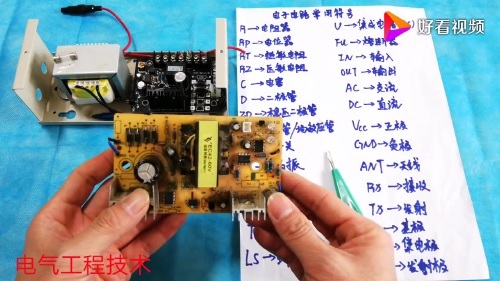 好看视频
电子电路常用符号
R→电阻器
RP→电位器
RT→热敏电阻
RZ→压敏电阻
C→电容
D→二极管
ZD→稳压二极管
U→集成电
FU→熔断器
IN→输入
OUT→输出
AC→交流
DC→直流
Vcc→正极
GND→负极
ANT→天线
RX→接收
TX→发射
→基极
→集电极
→发射极
LS→
电气工程技术